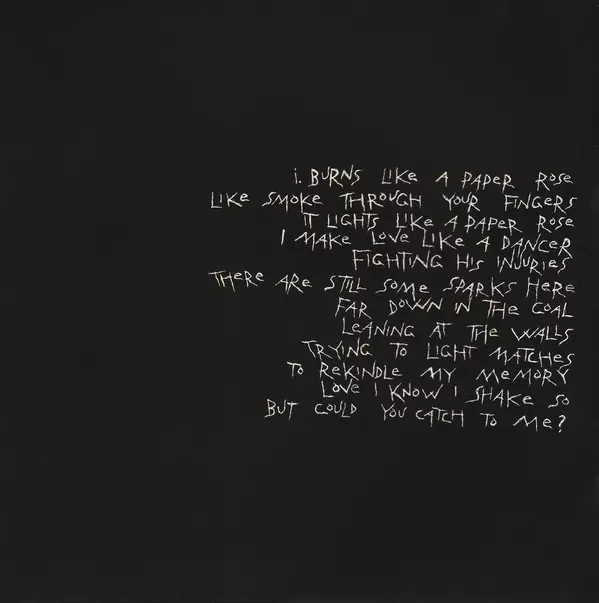 i. BURNS LIKE A PAPER ROSE
LIKE SMOKE THROUGH YOUR FINGERS
IT LIGHTS LIKE A PAPER ROSE
I MAKE LOVE LIKE A DANCER
FIGHTING HIS INJURIES
THERE ARE STILL SOME SPARKS HERE
FAR DOWN IN THE COAL
LEANING AT THE WALLS
TRYING TO LIGHT MATCHES
TO REKINDLE MY MEMORY
LOVE I KNOW I SHAKE SO
BUT COULD YOU CATCH TO ME?